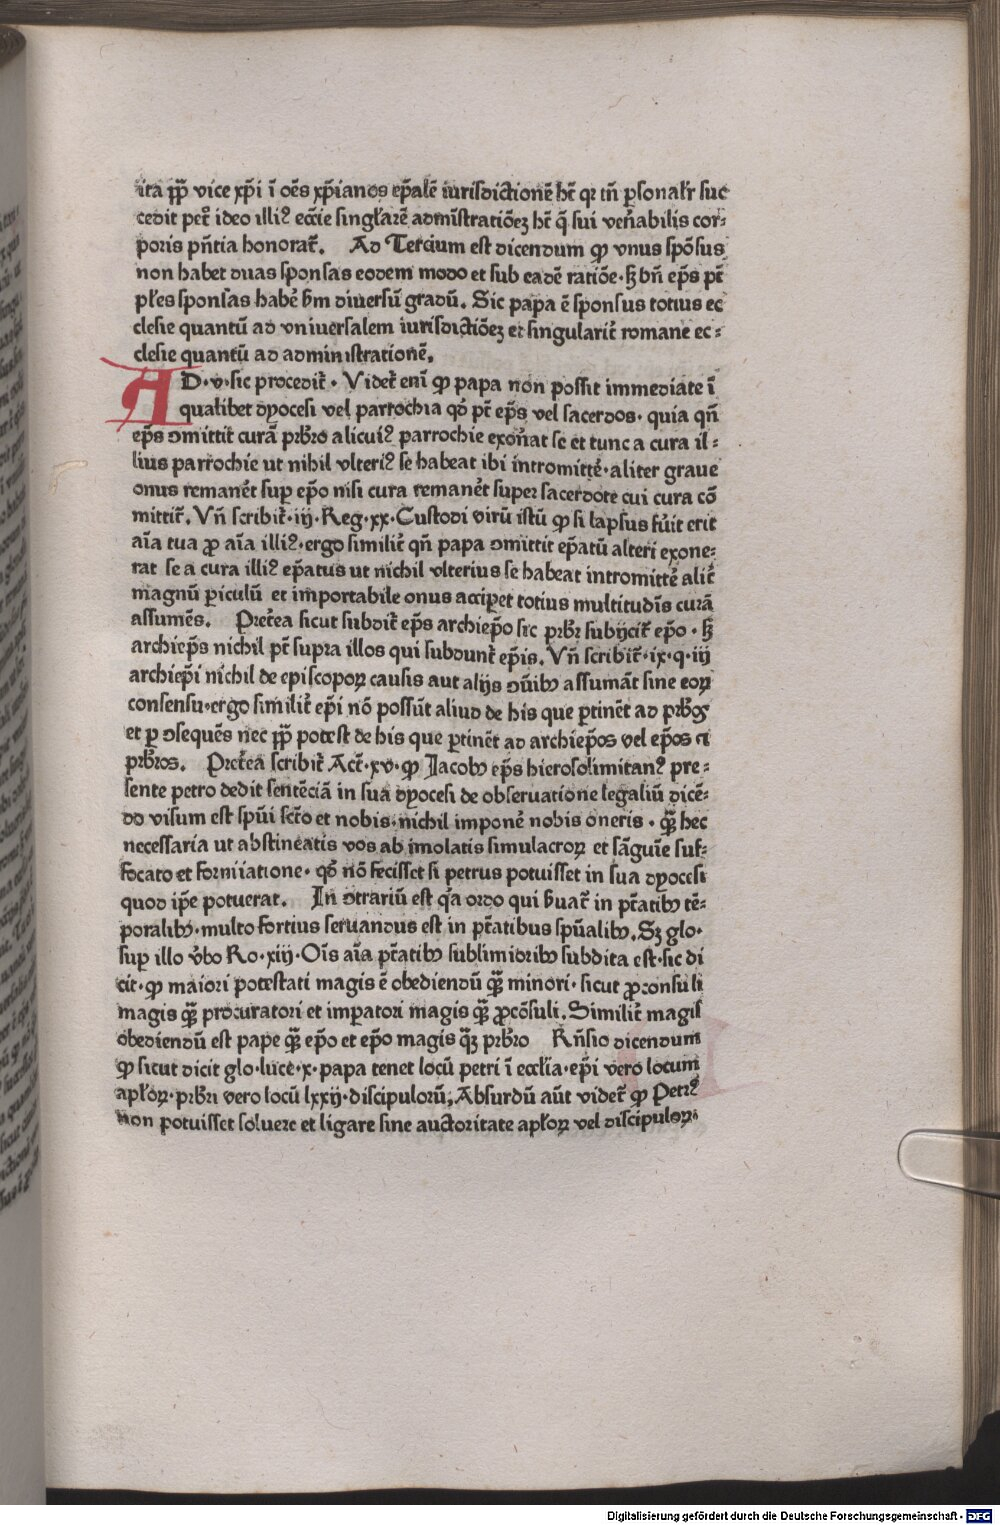 ita pp̄ vice xp̄i ī oēs xp̄ianos ep̄alē iurisdictionē hꝫ qꝛ tn̄ ꝑsonalr̄ suc
cedit petꝛ̄ ideo illiꝰ eccīe singlarē admīstratiōeꝫ hꝫ q̄ sui ven̄abilis cor⸗
poris pn̄tia honorat̄. Ad Tercium est dicendum ꝙ vnus spōsus
non habet duas sponsas eodem modo et sub eadē ratiōe·sꝫ bn̄ ep̄s pt̄
pl̄es sponsas habe᷑ s̄m diuersū gradū. Sic papa ē sponsus totius ec
clesie quantū ad vniuersalem iurisdictiōeꝫ et singularit̄ romane ec⸗
clesie quantū ad administrationē.
AD·v·sic procedit̄· Videt̄ enī ꝙ papa non possit immediate ī
qualibet dyocesi vel parrochia qd̄ pt̄ ep̄s vel sacerdos· quia qn̄
ep̄s ꝯmittit curā prb̄ro alicuiꝰ parrochie exon̄at se et tunc a cura il⸗
lius parrochie ut nihil vlteriꝰ se habeat ibi intromitte᷑·aliter graue
onus remane᷑t suꝑ ep̄o nisi cura remane᷑t super sacerdote cui cura cō
mittit̄. Vn̄ scribit̄·iij·Reg·xx·Custodi virū istū ꝙ si lapsus fu᷑it erit
aīa tua ꝓ aīa illiꝰ·ergo similit̄ qn̄ papa ꝯmittit ep̄atū alteri exone⸗
rat se a cura illiꝰ ep̄atus ut nichil vlterius se habeat intromitte᷑ alit̄
magnū ꝑiculū et importabile onus acciꝑet totius multitudīs curā
assumēs. Pret̄ea sicut subdit̄ ep̄s archiep̄o sic prb̄r subijcit̄ ep̄o·sꝫ
archiep̄s nichil pt̄ supra illos qui subdunt̄ ep̄is. Vn̄ scribit̄·ix·q·iij
archiep̄i nichil de episcopoꝝ causis aut alijs ꝯ᷑ibꝰ assumāt sine eoꝝ
consensu·ergo similit̄ ep̄i nō possūt aliud de his que ꝑtinēt ad prb̄os
et ꝑ ꝯsequēs nec pp̄ potest de his que ꝑtinēt ad archiep̄os vel ep̄os ⁊
prb̄ros. Pret̄ea scribit̄ Act̄·xv·ꝙ Jacobꝰ ep̄s hierosolimitanꝰ pre⸗
sente petro dedit sentēciā in sua dyocesi de obseruatione legaliū dicē⸗
do visum est sp̄ui sct̄o et nobis·nichil impone᷑ nobis oneris · qꝫ̄ hec
necessaria ut abstineatis vos ab imolatis simulacroꝝ et sāguīe suf⸗
focato et forniiatione· qd̄ nō fecisset si petrus potuisset in sua dyocesi
quod ip̄e potuerat. In ꝯtrariū est qa ordo qui s̄uat̄ in pt̄atibꝰ tē⸗
poralibꝰ·multo fortius seruandus est in pt̄atibus sp̄ualibꝰ. Sꝫ glo·
suꝑ illo v᷑bo Ro·xiij·Oīs aīa pt̄atibꝰ sublimioribꝰ subdita est·sic di
cit·ꝙ maiori potestati magis ē obediendū qꝫ̄ minori· sicut ꝓconsuli
magis qꝫ̄ procuratori et imꝑatori magis qꝫ̄ ꝓcōsuli. Similit̄ magis
obediendū est pape qꝫ̄ ep̄o et ep̄o magis qꝫ̄ prb̄ro Rn̄sio dicendum
ꝙ sicut dicit glo·luce·x·papa tenet locū petri ī eccl̄ia·ep̄i vero locum
apl̄oꝝ·prb̄ri vero locū lxxij·discipuloꝝ. Absurdū aūt videt̄ ꝙ Petrꝰ
non potuisset soluere et ligare sine auctoritate apl̄oꝝ vel discipuloꝝ·
Digitalisierung gefördert durch die Deutsche Forschungsgemeinschaft - DFG